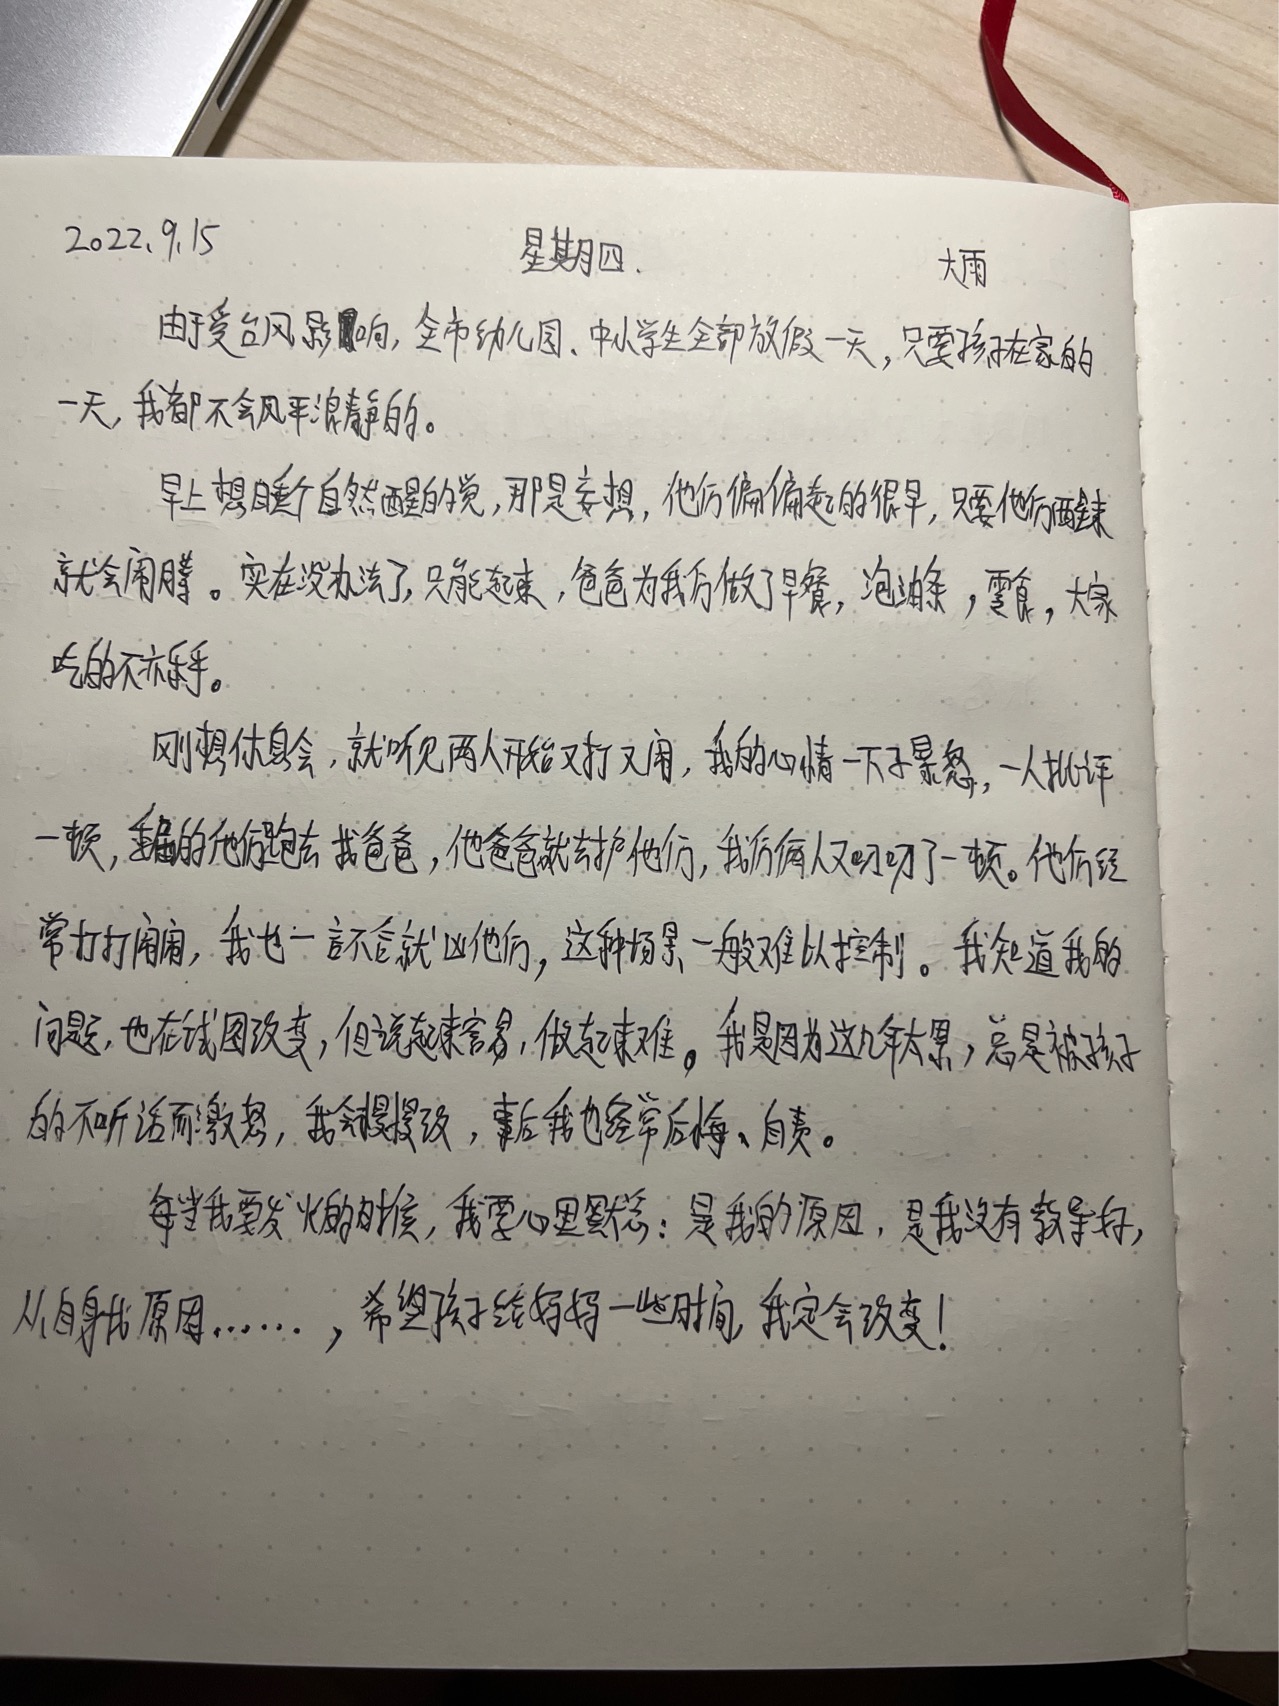 2022.9.15 星期四. 大雨
由于受台风影响,全市幼儿园、中小学生全部放假一天,只要孩子在家的
一天,我都不会风平浪静的。
早上想睡个自然醒的觉,那是妄想,他们偏偏起的很早,只要他们醒来
就会闹腾。实在没办法了,只能起来,爸爸为我们做了早餐,泡油条,零食,大家
吃的不亦乐乎。
刚想休息会,就听见两人开始又打又闹,我的心情一下子暴怒,一人批评
一顿,委屈的他们跑去找爸爸,他爸爸就去护他们,我们俩人又叨叨了一顿。他们经
常打打闹闹,我也一言不合就凶他们,这种场景一般难以控制。我知道我的
问题,也在试图改变,但说起来容易,做起来难。我是因为这几年太累,总是被孩子
的不听话而激怒,我会慢慢改,事后我也经常后悔、自责。
每当我要发火的时候,我要心里默念:是我的原因,是我没有教导好,
从自身找原因......,希望孩子给妈妈一些时间,我定会改变!